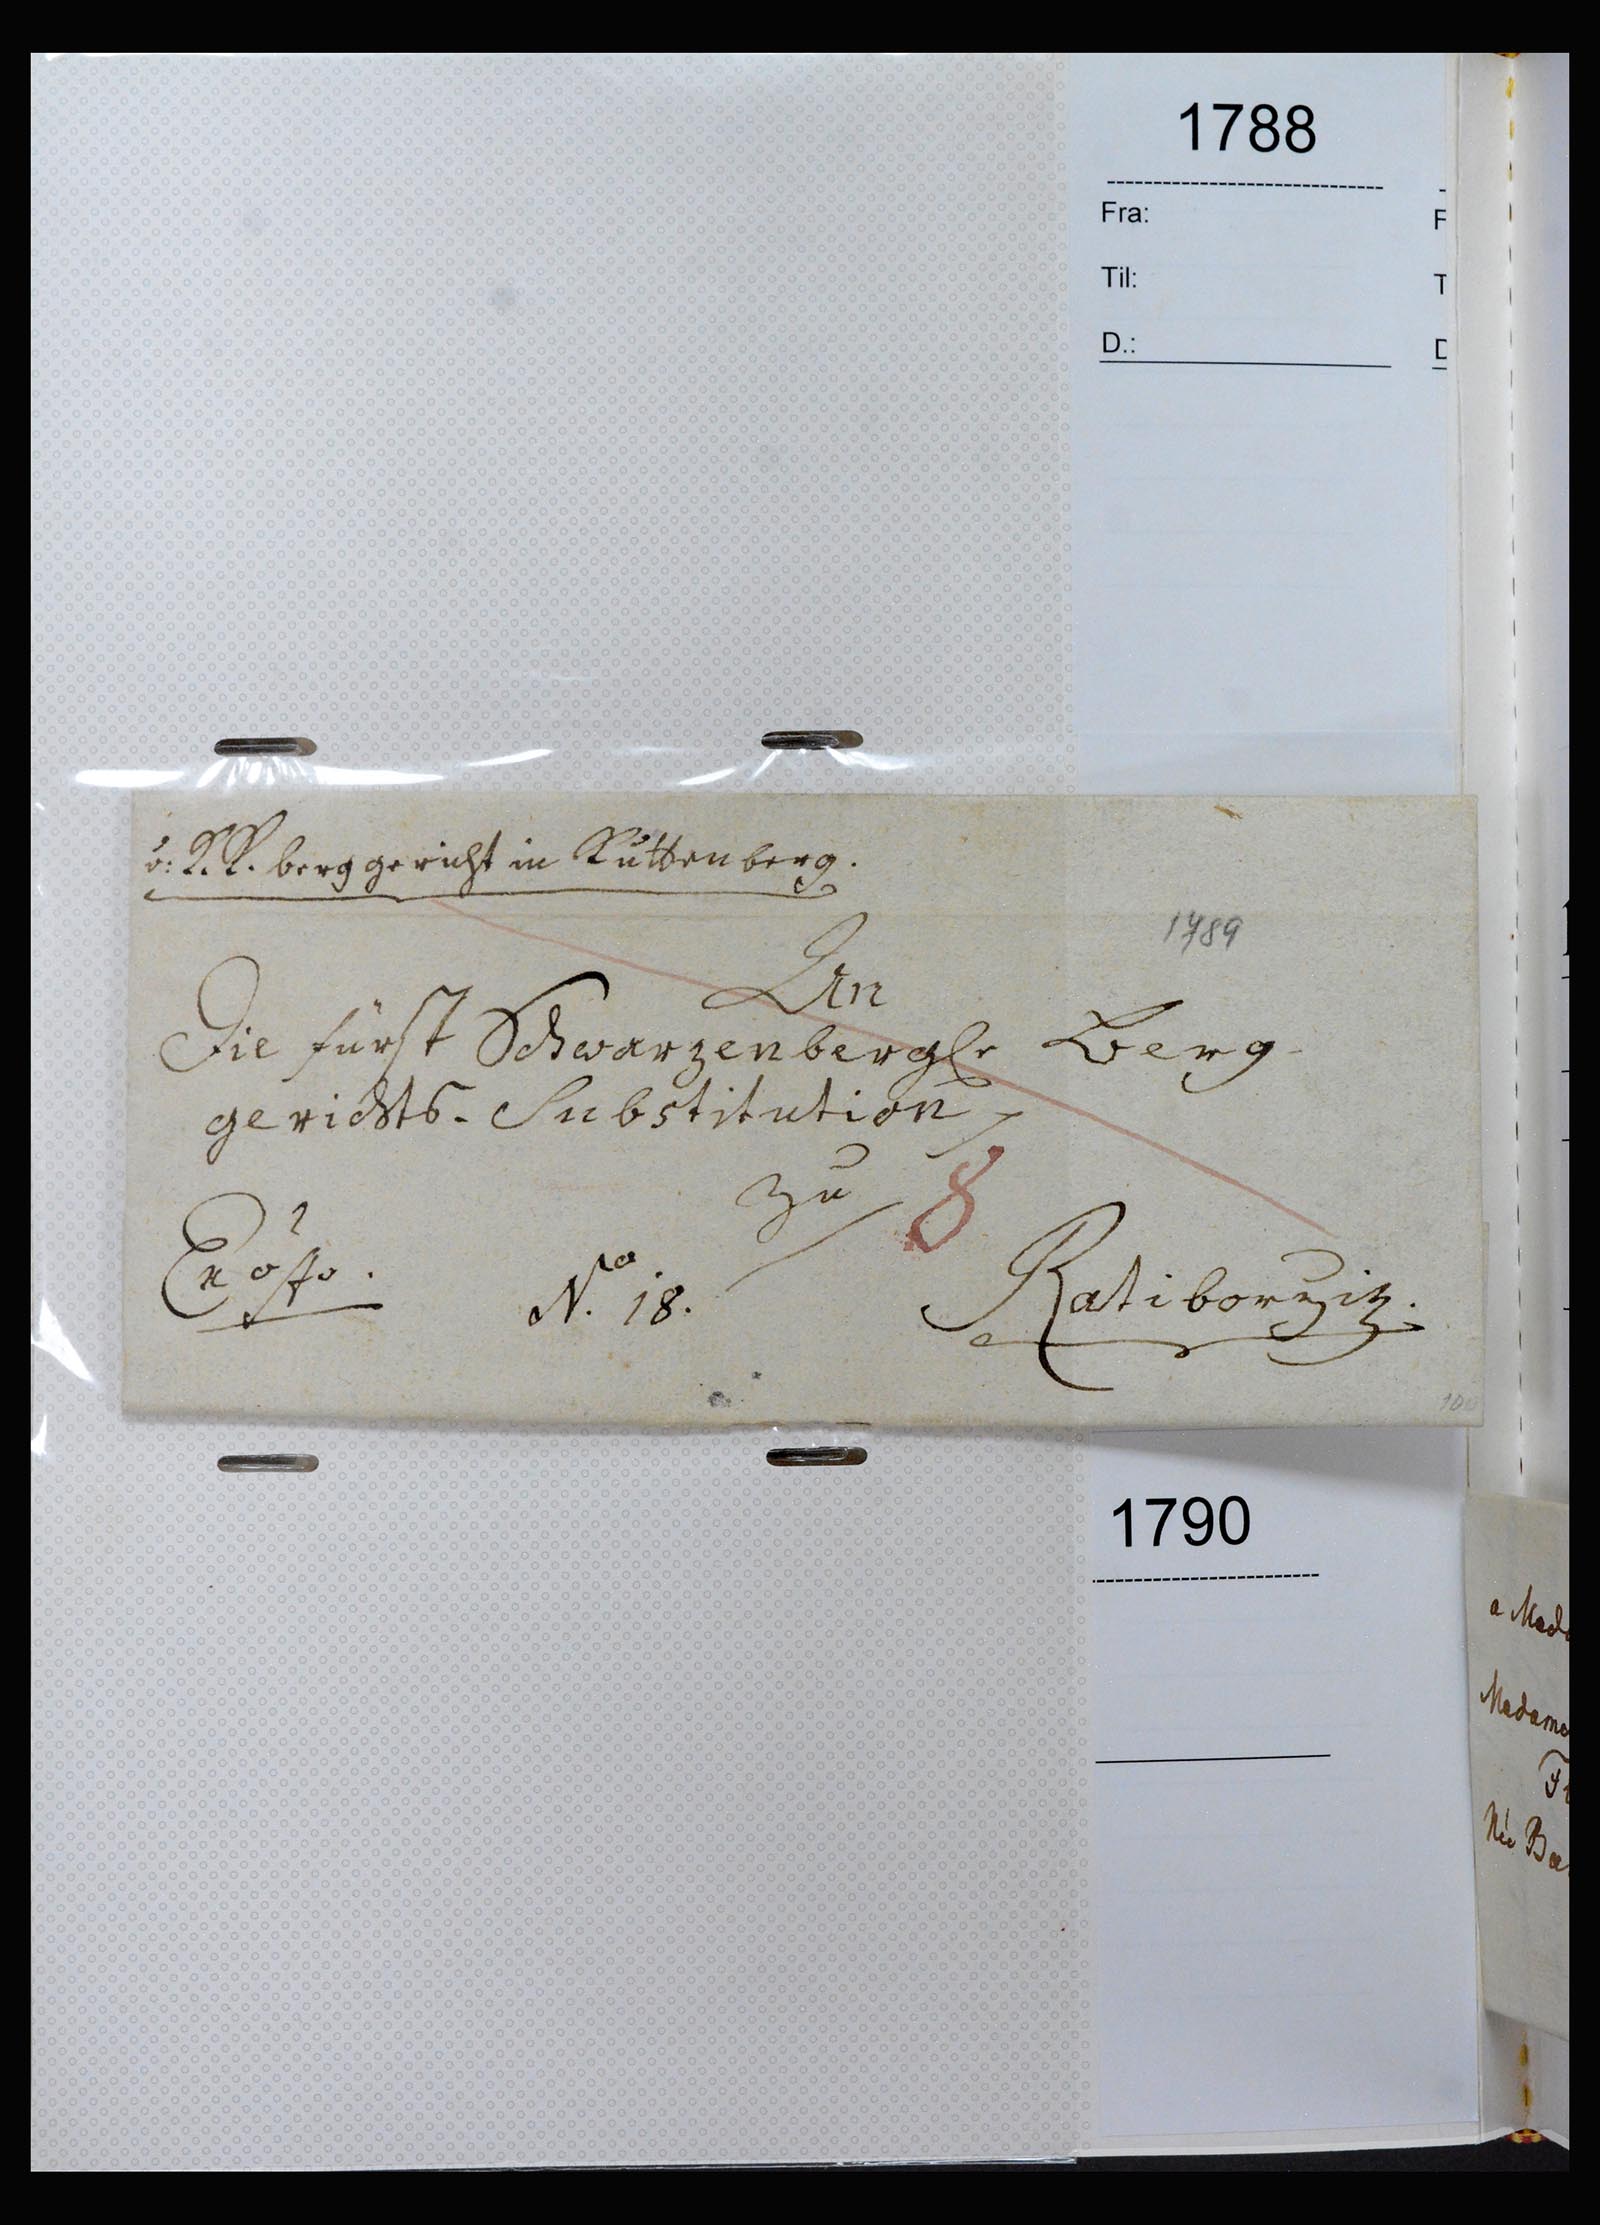 1788
Fra:
Til:
D.:
F
T
D
v: K. K. berggericht in Kuttenberg.
1789
An
Die fürst Schwarzenbergle Berg-
gerichts-Substitution
zu
8
Ex offo.
No. 18.
Ratiborzitz.
100
1790
a Mada
Madame
Née Ba